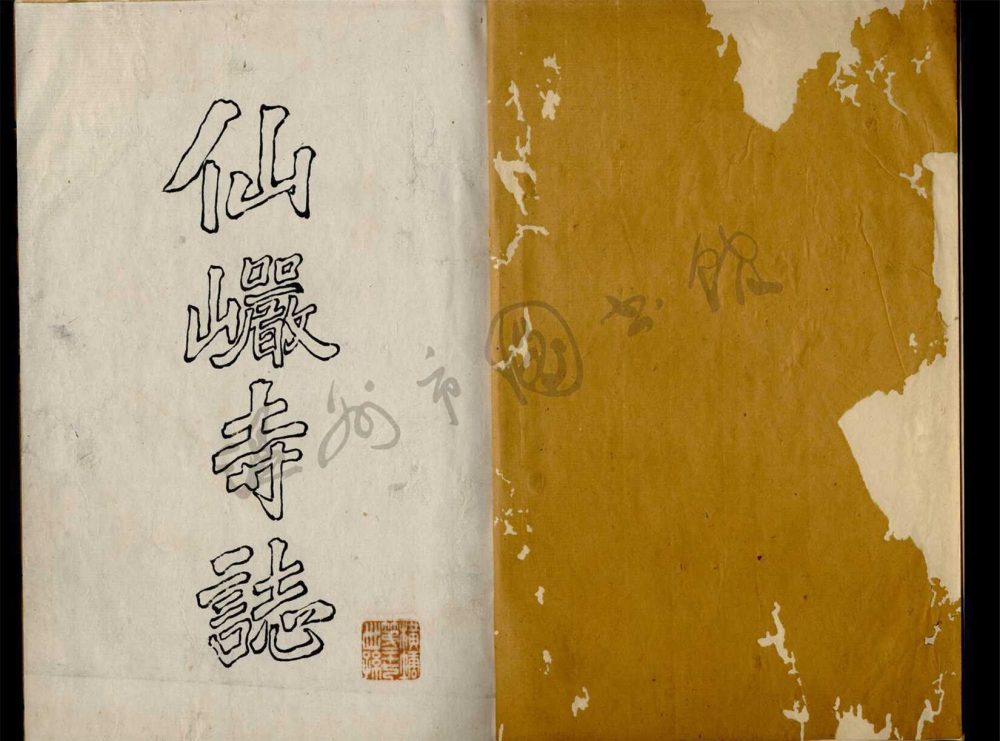 仙
巗
寺
誌
温州市图书馆